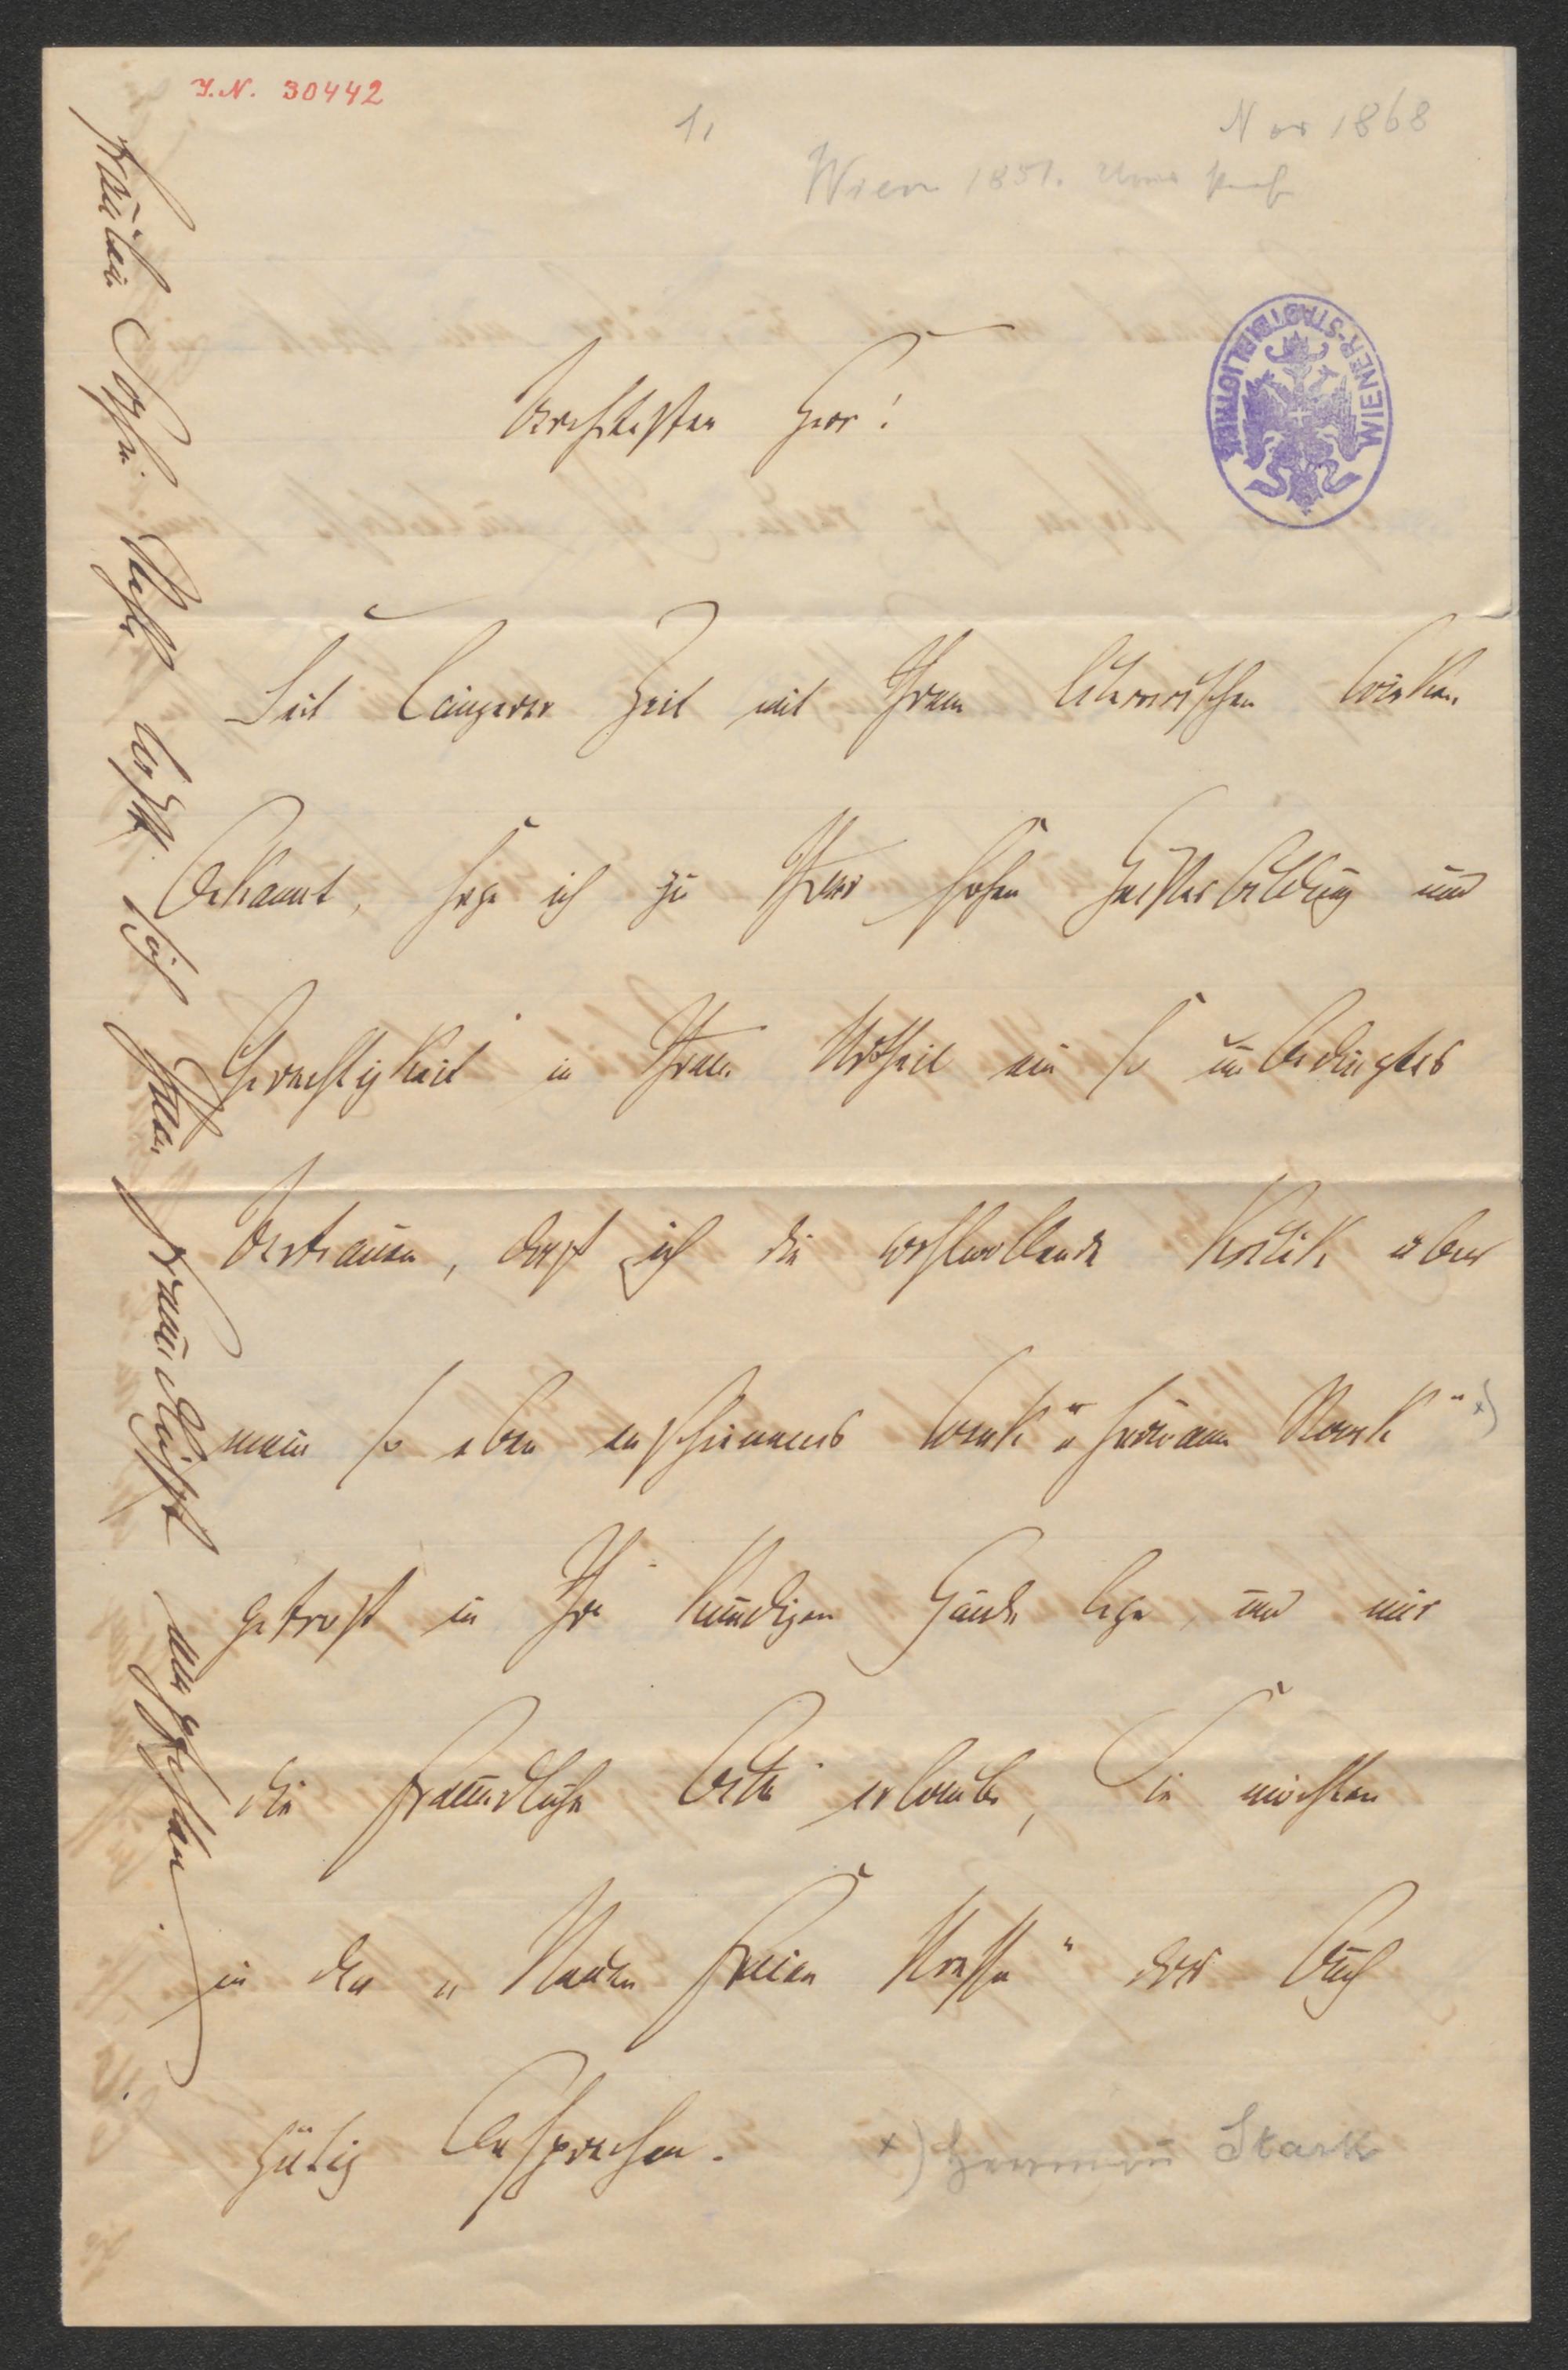 I.N. 30442
1,
Nov 1868
Wien 1851.
WIENER-STADTBIBLIOTHEK
Verehrtester Herr!
Seit längerer Zeit mit Ihrem literarischen Wirken
bekannt, hege ich zu Ihrer hohen Geistesbildung und
Gerechtigkeit in Ihrem Urtheil ein so unbedingtes
Vertrauen, daß ich die wohlwollende Kritik über
mein so eben erschienenes Werk „Hermann Stark" x)
getrost in Ihre kundigen Hände lege, und mir
die freundliche Bitte erlaube, Sie möchten
in der „Neuen freien Presse" das Buch
gütig besprechen.
x) Hermann Stark
Fräulein Sophie läßt sich Ihnen freundlichst empfehlen.